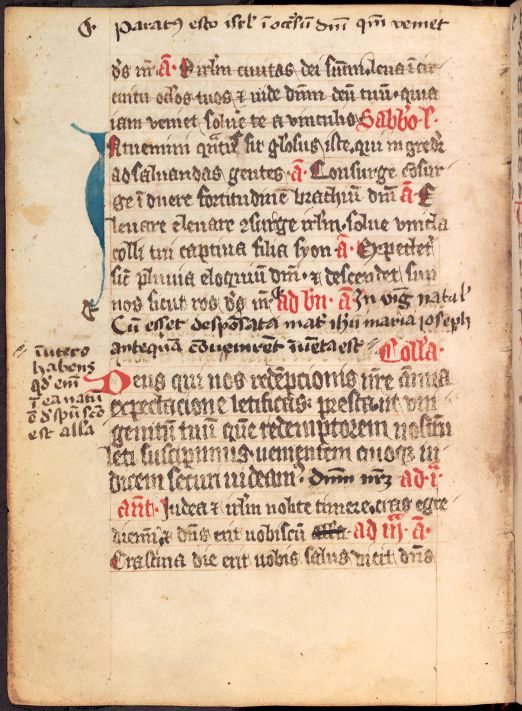 Paratus esto isrl' in occursum dni qm veniet
ds nr. A. Irlm civitas dei summi leva in cir
cuitu oclos tuos et vide dnm deu tuu. quia
iam veniet solve te a vinculo Sabbo. S.
Intuemini quatus sit glosus iste. qui ingredit
ad salvandas gentes. A. Consurge consur
ge induere fortitudinem brachiu dni A. E
levare elevare 2surge irlm. solve vincla
colli tui captiva filia syon A. Expectet
sic pluvia eloquiu dni. et descendet sup
nos sicut ros ds nr ad bn. A In vig natal'
Cu esset desponsata mat ihu maria ioseph
antequa conveniret inventa est Colla.
in utero
habens
qd eni
i ea natu
e d spu sco
est alla
Deus qui nos redemptionis nre annua
expectacione letificas: presta. ut uni
genitu tuu que redemptorem nostru
leti suscipimus. venientem quoque iu
dicem securi videam. dnm nrm ad i
ant. Iudea et irlm nolite timere. cras egre
diemi. et dns erit vobiscu alla ad iii. A.
Crastina die erit vobis salus dicit dns